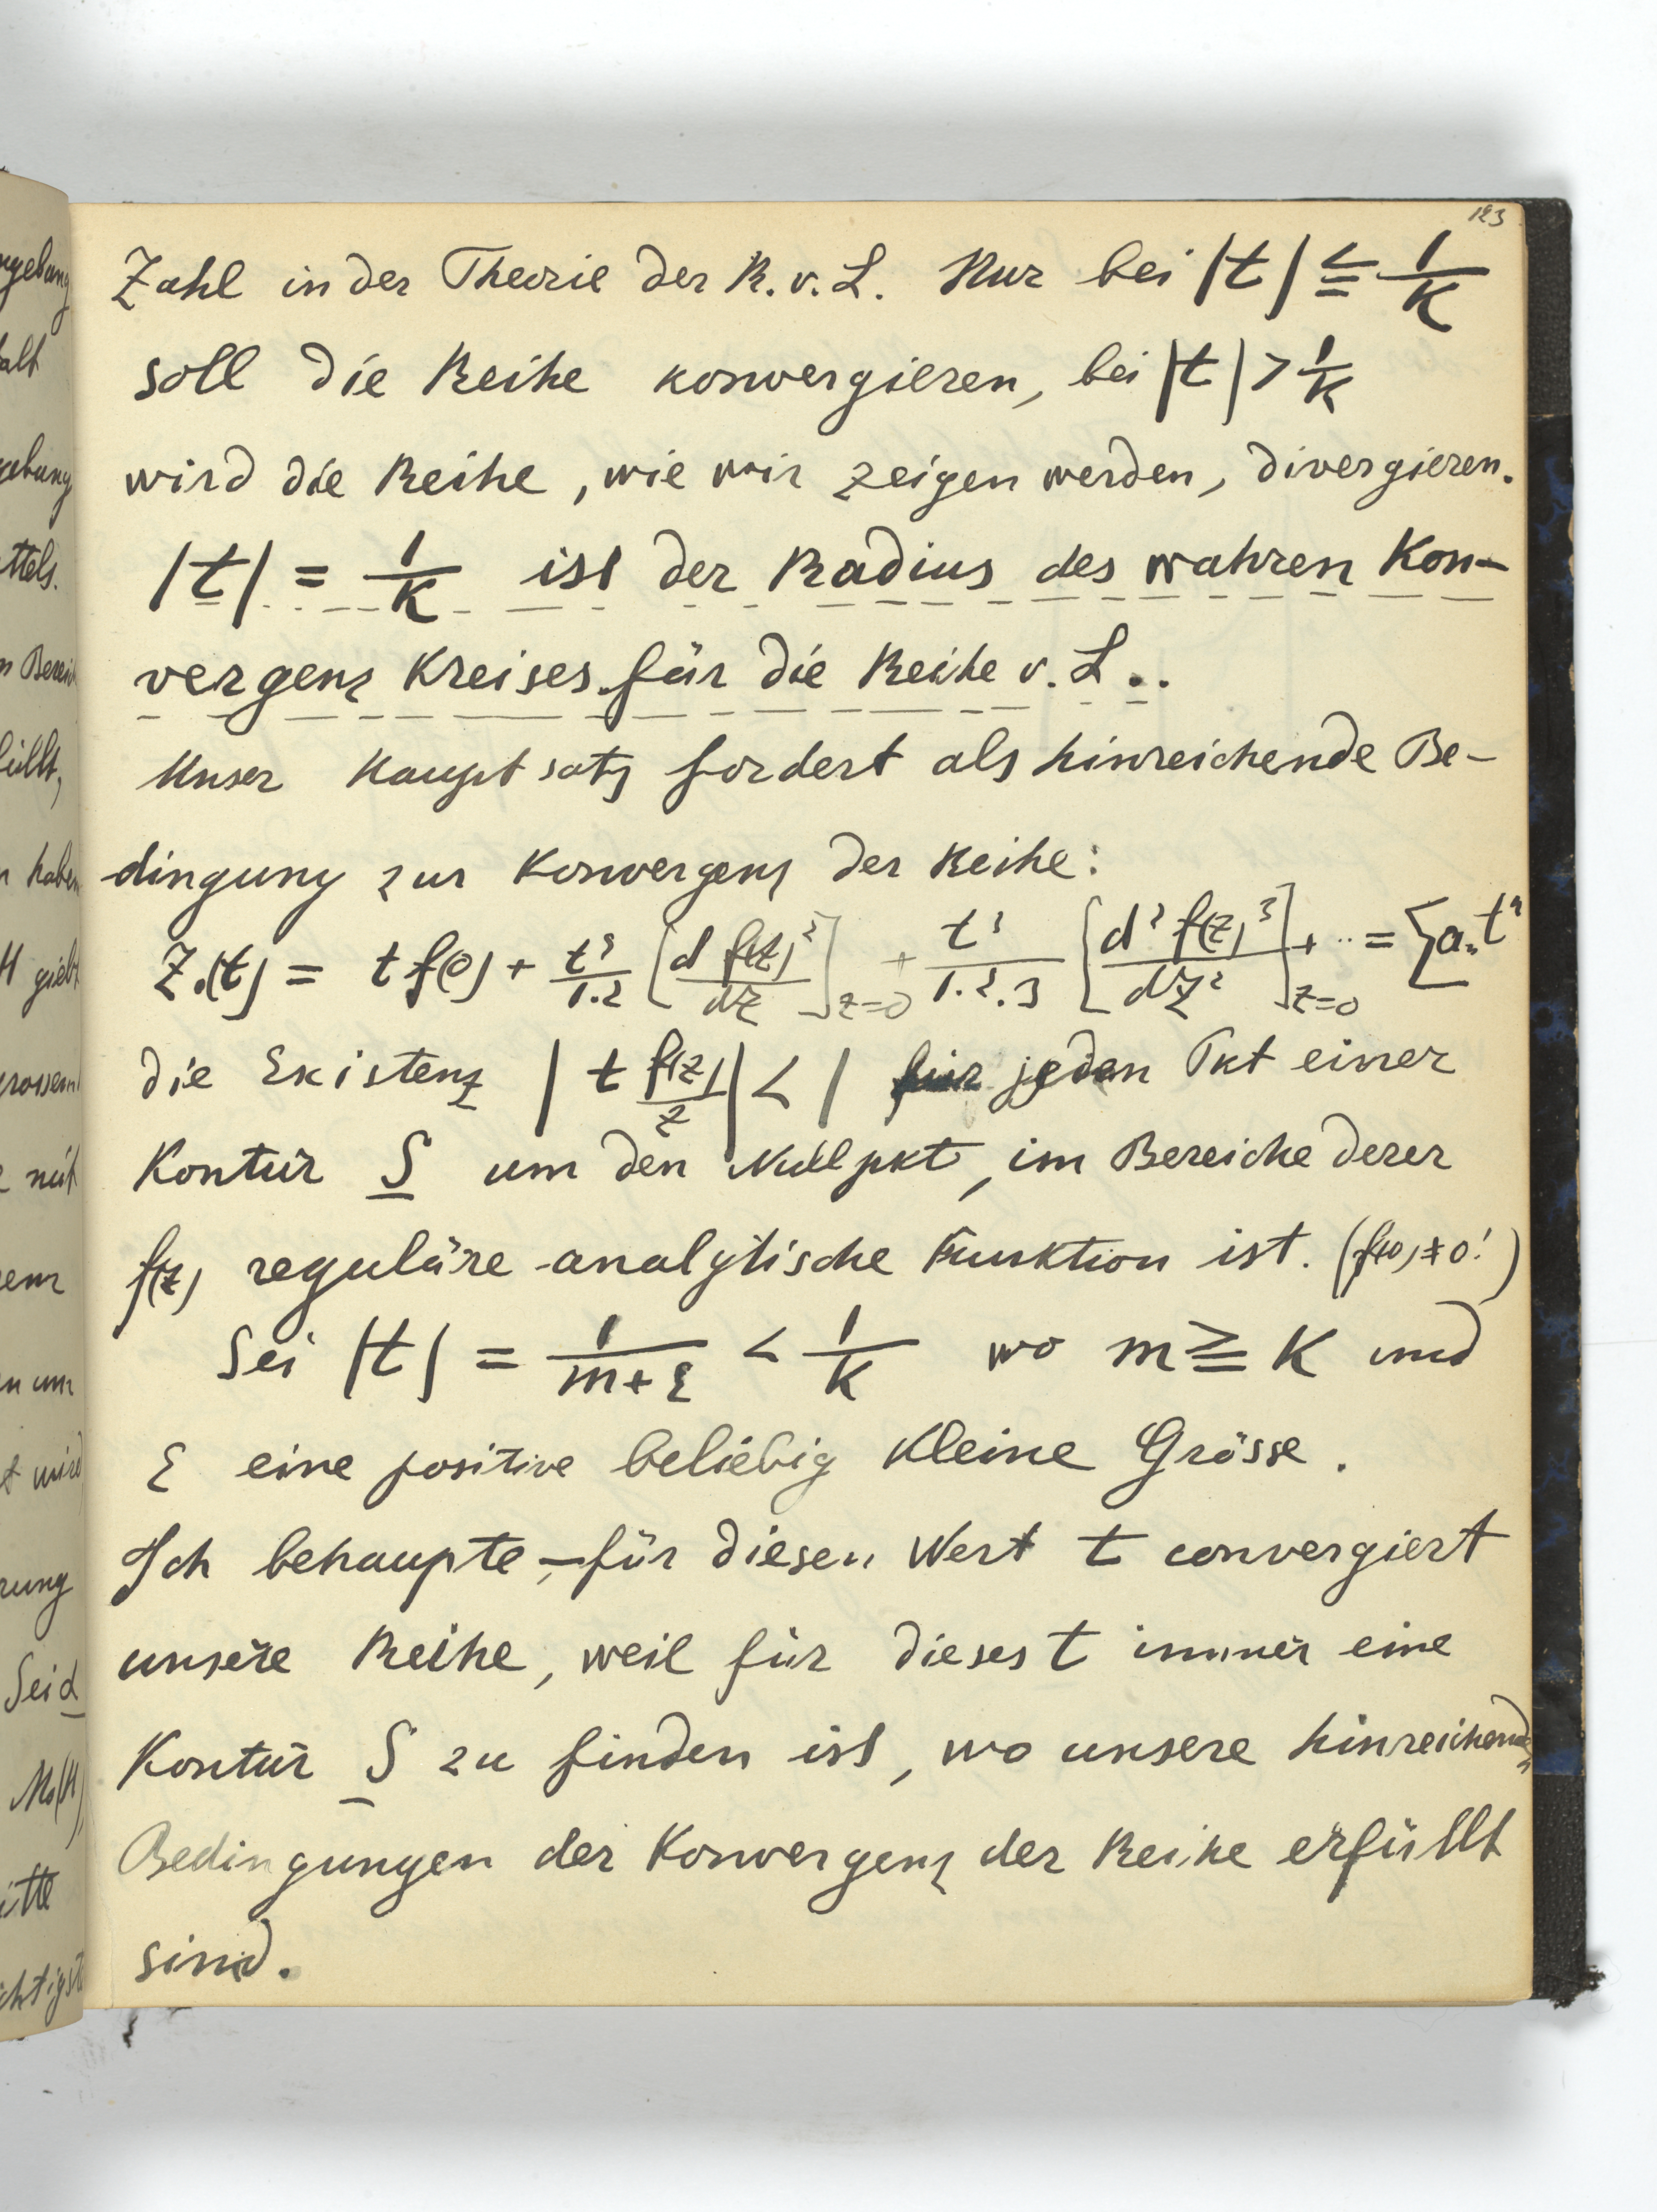 123
Zahl in der Theorie der R. v. L. Nur bei |t| ≦ 1/K
soll die Reihe konvergieren, bei |t| > 1/K
wird die Reihe, wie wir zeigen werden, divergieren.
|t| = 1/K ist der Radius des wahren Kon-
vergenz Kreises für die Reihe v. L..
Unser Hauptsatz fordert als hinreichende Be-
dingung zur Konvergenz der Reihe:
Z.(t) = t f(0) + t²/1.2 [d f(z)²/dz]z=0 + t³/1.2.3 [d² f(z)³/dz²]z=0 + ·· = ∑ aₙ tⁿ
die Existenz | t f(z)/z | < 1 für jeden Pkt einer
Kontur S um den Nullpkt, im Bereiche derer
f(z) reguläre analytische Funktion ist. (f(0) ≠ 0!)
Sei |t| = 1/m+ε < 1/K wo m ≧ K und
ε eine positive beliebig kleine Grösse.
Ich behaupte, – für diesen Wert t convergiert
unsere Reihe, weil für dieses t immer eine
Kontur S zu finden ist, wo unsere hinreichenden
Bedingungen der Konvergenz der Reihe erfüllt
sind.